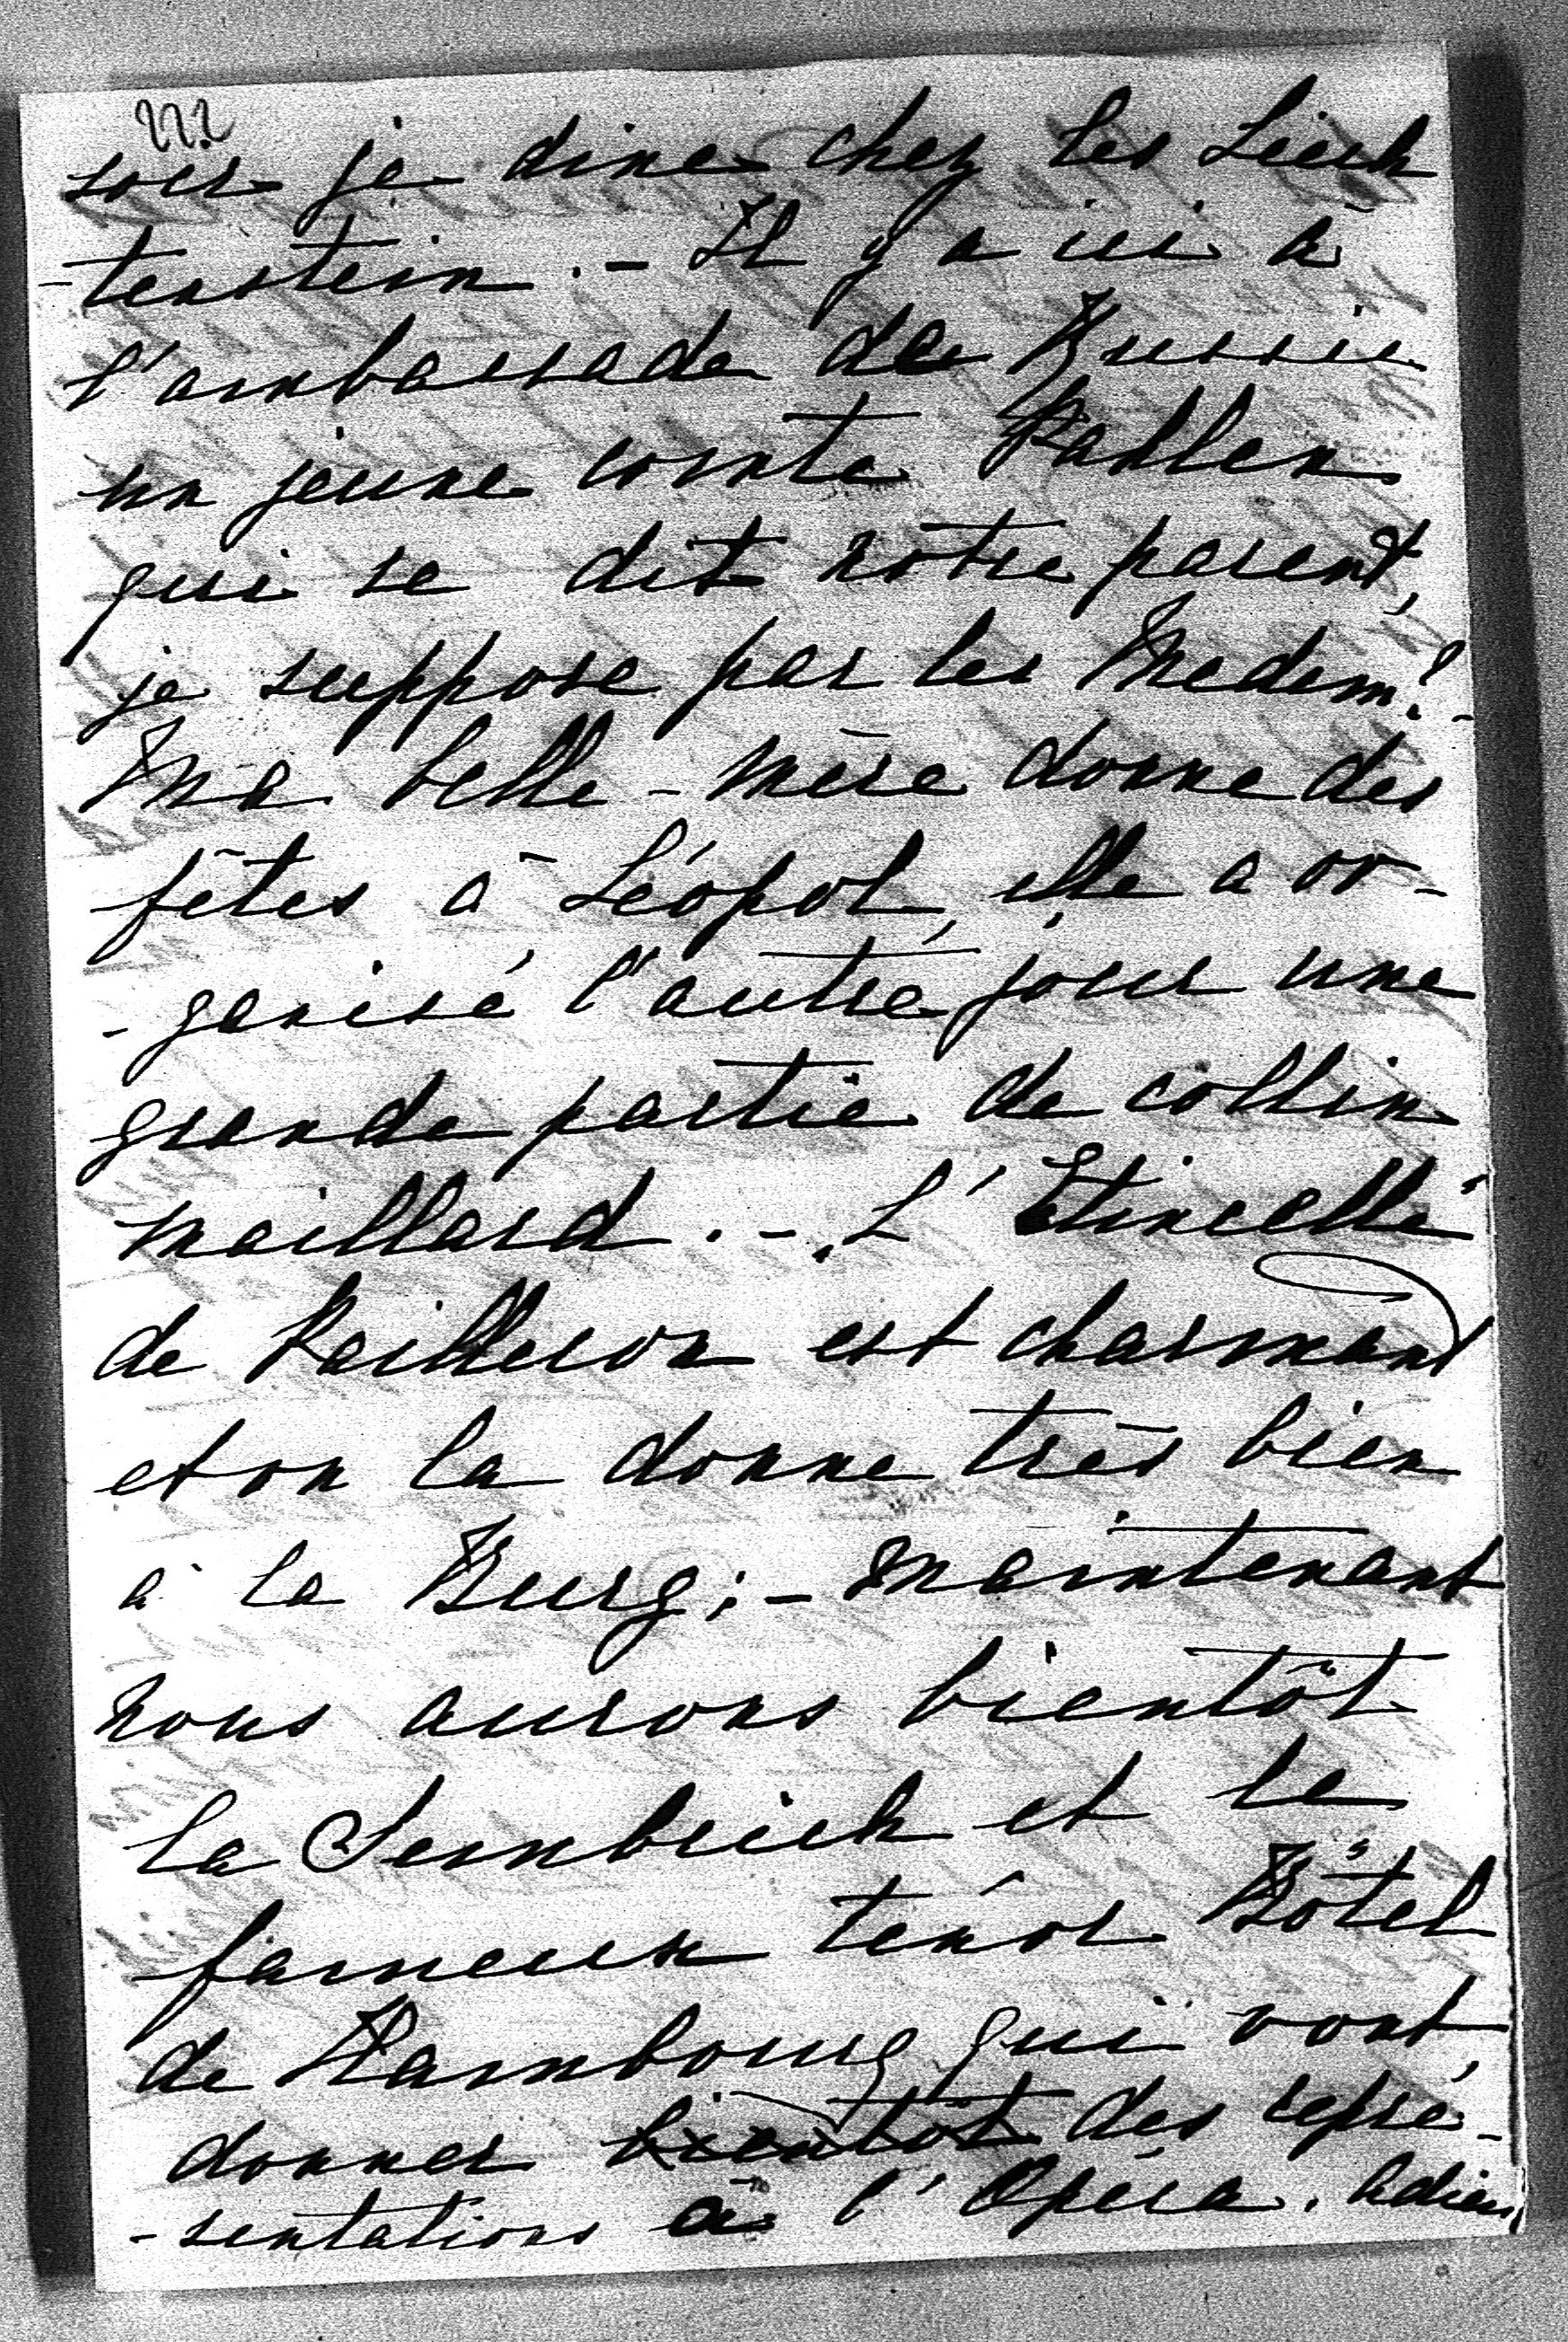 222
soir je dine chez les Liech
-tenstein. - Il y a ici à
l'ambassade de Russie
un jeune comte Pahlen
qui se dit nôtre parent,
je suppose par les Medem? -
Ma belle-mère donne des
fêtes à Léopol, elle a or-
-ganisé l'autre jour une
grande partie de collin
maillard. - L'Etincelle
de Pailleron est charmant
et on la donne très bien
à la Burg; - maintenant
nous aurons bientôt
la Sembrich et le
fameux ténor Bötel
de Hambourg qui vont
donner bientôt des repré-
-sentations à l'Opéra. Adieu